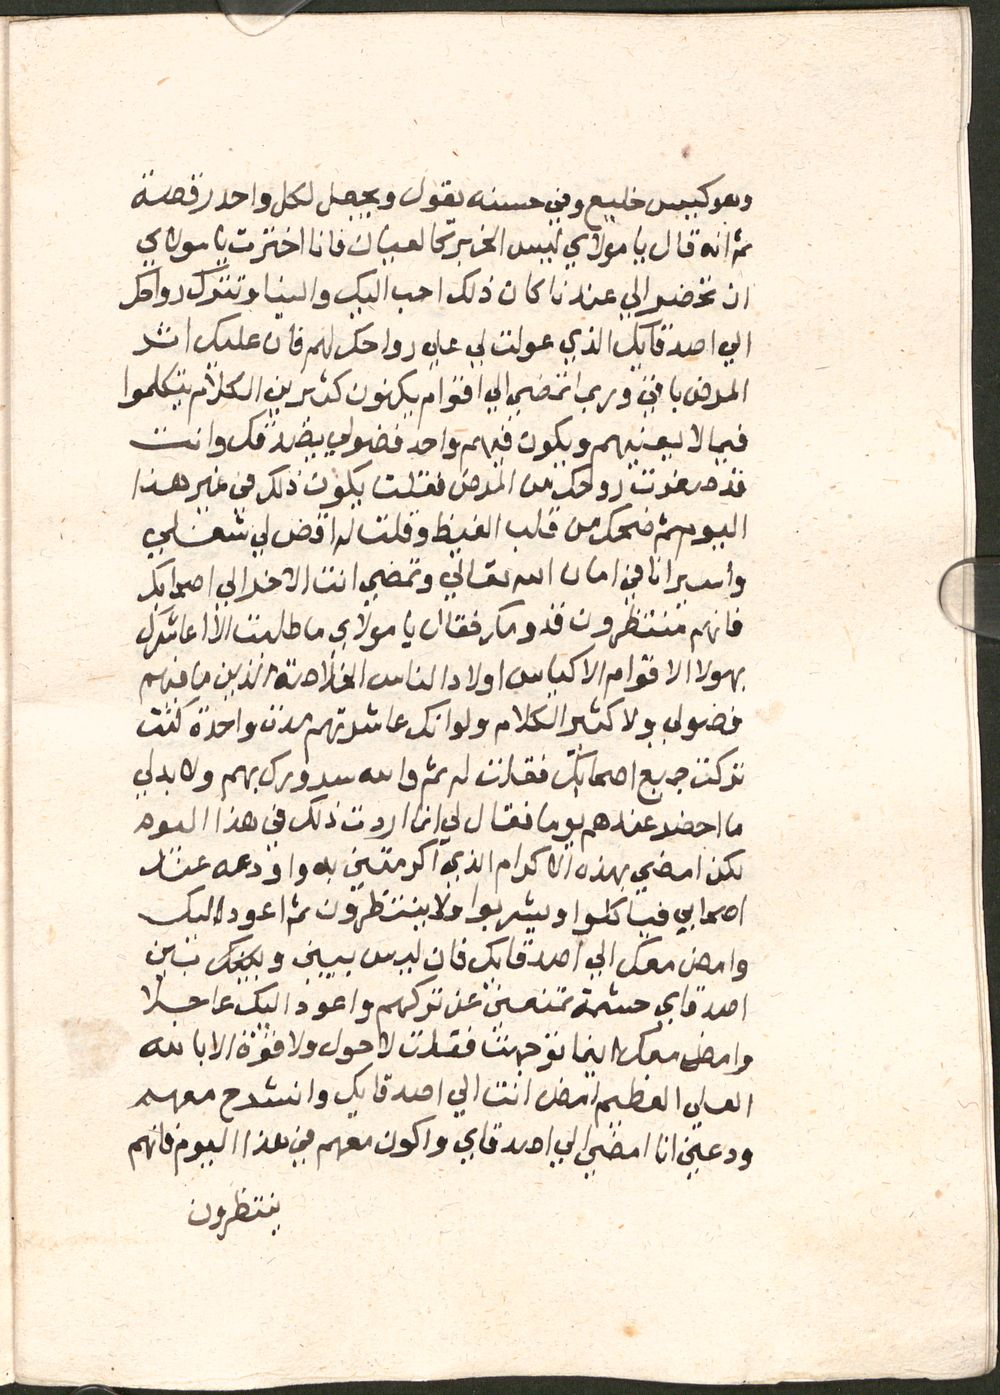 وهو كييس خليع وفي حسنه يقول ويجعل لكل واحد رقصة
ثم انه قال يا مولاي ليس الخبر كالعيان فانا اخترت يا مولاي
ان تحضر الي عندنا كان ذلك احب اليك والينا وتترك رواحك
الي اصدقايك الذي عولت لي علي رواحك لهم فان عليك اثر
المرض باقي وربما تمضي الي اقوام يكونون كثيرين الكلام يتكلموا
فيما لا يعنيهم ويكون فيهم واحد فضولي يصدقك وانت
قد صغرت روحك من المرض فقلت يكون ذلك في غير هذا
اليوم ثم ضحك من قلب الغيظ وقلت له اقض لي شغلي
وأسير انا في امان الله تعالي وتمضي انت الاخر الي اصحابك
فانهم منتظرون قدومك فقال يا مولاي ما طلبت الا اعاشرك
بهولا الاقوام الاكياس اولاد الناس الخلاصة الذين ما فيهم
فضولي ولا كثير الكلام ولو انك عاشرتهم مدة واحدة كنت
تركت جميع اصحابك فقلت له ثم والله سرورك بهم ولا بد لي
ما احضر عندهم يوما فقال لي اذا اردت ذلك في هذا اليوم
لكن امضي بهذه الاكرام الذي اكرمتني به واودعه عند
اصحابي فياكلوا ويشربوا ولا ينتظرون ثم اعود اليك
وامض معك الي اصدقايك فان ليس بيني وبينك بين
اصدقاي حشمة تمنعني عن تركهم واعود اليك عاجلا
وامض معك اينما توجهت فقلت لا حول ولا قوة الا بالله
العلي العظيم امض انت الي اصدقايك وانشرح معهم
ودعني انا امضي الي اصدقاي واكون معهم في هذا اليوم فانهم
ينتظرون